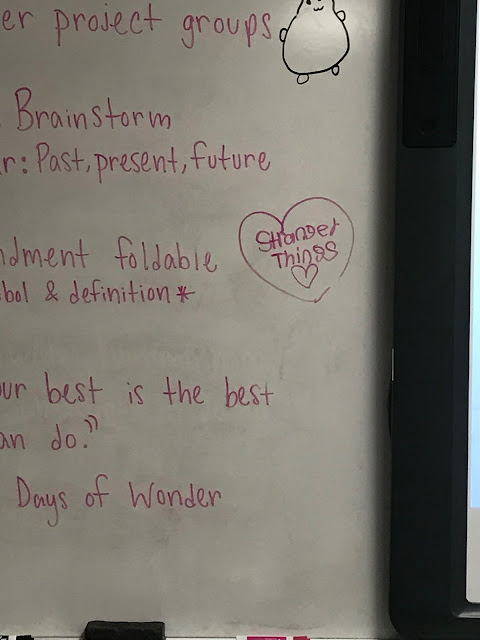 er project groups
Brainstorm
r: Past, present, future
ndment foldable
bol & definition*
Stranger
Things
ur best is the best
an do."
Days of Wonder